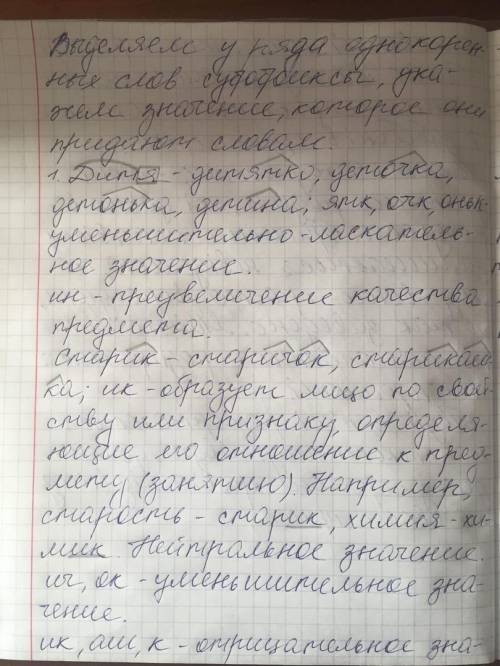 Выделяем у ряда однокорен-
ных слов суффиксы, ука-
жем значение, которое они
придают словам.
1. Дитя - дитятко, деточка,
детонька, детина; ятк, очк, оньк-
уменьшительно-ласкатель-
ное значение.
ин - преувеличение качества
предмета.
Старик - старичок, старикаш-
ка; ик - образует лицо по свой-
ству или признаку, определя-
ющие его отношение к пред-
мету (занятию). Например,
старость - старик, химия - хи-
мик. Нейтральное значение.
ич, ок - уменьшительное зна-
чение.
ик, аш, к - отрицательное зна-